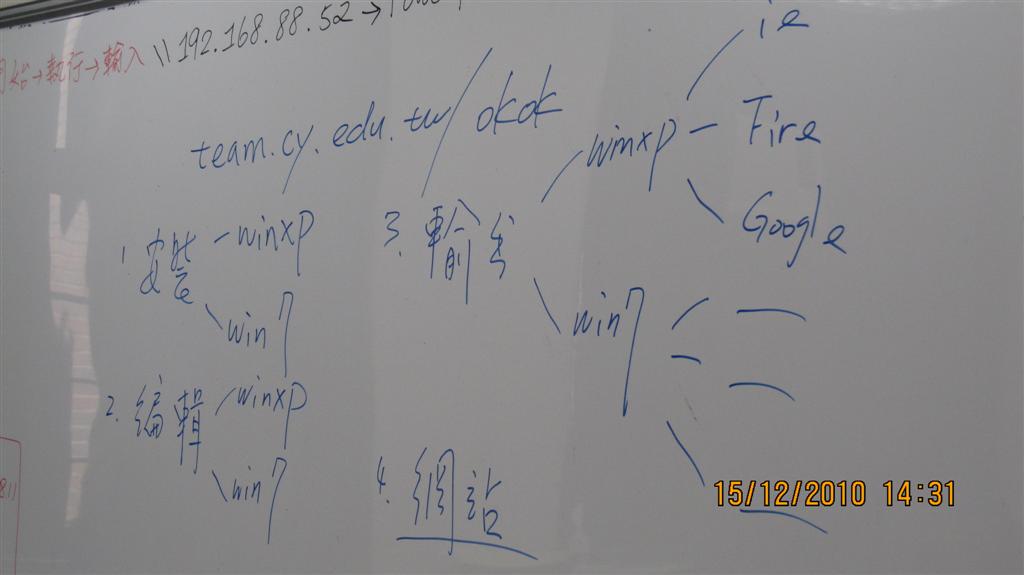 始→執行→輸入 \\192.168.88.52→
team.cy.edu.tw/okok
1. 安裝 winxp
win7
2. 編輯 winxp
win7
3. 輸出
winxp
ie
Fire
Google
win7
4. 網站
15/12/2010 14:31